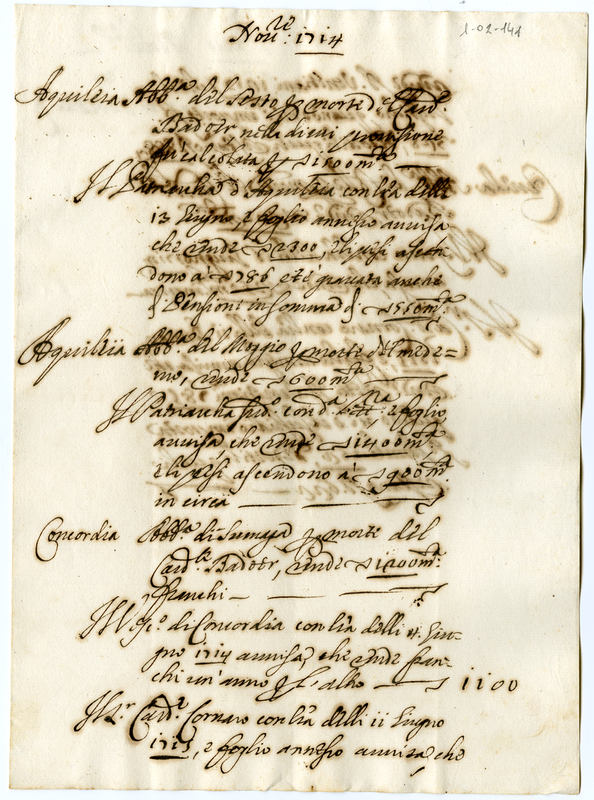 1-02-141
Nov.re: 1714
Aquileia Abb.a del Sesto p morte del Card.
Badoer, nella di cui provisione
fu calcolata p ∆ 1500 m.ta
Il Patriarcha d'Aquileia con l'ra delli
13 Giugno, e foglio annesso avvisa
che rende ∆ 2300, e li pesi ascen-
dono a ∆ 786, et è gravata anche
di Pensioni in somma di ∆ 550 m.ta
Aquileia Abb.a del Moggio p morte del mede=
mo, rende ∆ 600 m.ta
Il Patriarcha sud.o con d.a lett.ra e foglio
avvisa, che rende ∆ 1400 m.ta
e li pesi ascendono a ∆ 900 m.ta
in circa
Concordia Abb.a di Sumaga p morte del
Card.le Badoer, rende ∆ 1200 m.ta
franchi
Il Vesc.o di Concordia con l'ra delli Giu-
gno 1714 avvisa, che rende fran-
chi un'anno p l'altro 1100
Il S.r Card.e Cornaro con l'ra delli 11 Giugno
1715, e foglio annesso avvisa che